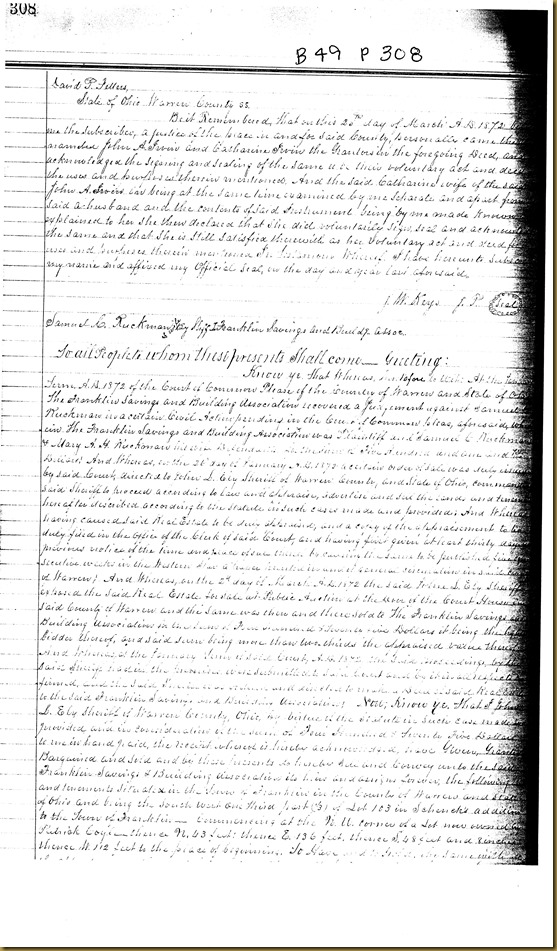 308
B 49 P 308
David P. Fellers,
State of Ohio Warren County ss.
Be it Remembered, That on this 20th day of March A.D. 1872
me the subscriber, a Justice of the Peace in and for said County, personally came the
named John A. Irvin and Catharine Irvin the Grantors in the foregoing Deed, and
acknowledged the signing and sealing of the same to be their voluntary act and deed
the uses and purposes therein mentioned. And the said Catharine wife of the said
John A. Irvin being at the same time examined by me separate and apart from
said husband and the contents of said Instrument being by me made known
explained to her she then declared that she did voluntarily sign, seal and acknowl
the same and that she is still satisfied therewith as her voluntary act and deed for
uses and purposes therein mentioned In testimony Whereof I have hereunto subsc
my name and affixed my Official Seal, on the day and year last aforesaid.
J. W. Keys J. P. Seal
Samuel C. Ruckman by Shff Franklin Savings and Build'g Assoc.
To all People to whom these presents Shall come Greeting:
Know ye, That Whereas, heretofore to wit: At the
Term A.D. 1872 of the Court of Common Pleas of the County of Warren and State of Ohio
The Franklin Savings and Building Association recovered a judgement against Samuel
Ruckman in a certain Civil Action pending in the Court of Common Pleas, aforesaid, wh
in The Franklin Savings and Building Association was Plaintiff and Samuel C. Ruckman
& Mary A. H. Ruckman were Defendants for the sum of Five Hundred and One and
Dollars: And Whereas, on the day of January A.D. 1872 a certain order of sale was duly issued
by said Court, directed to John L. Ely Sheriff of Warren County, and State of Ohio, commanding
said Sheriff to proceed according to law and appraise, advertise and sell the lands and tenem
hereafter described according to the statute in such cases made and provided: And Whereas
having caused said Real Estate to be duly appraised, and a copy of the appraisement to be
duly filed in the Office of the Clerk of said Court, and having first given at least thirty days
previous notice of the time and place of sale thereof by causing the same to be published
secutive weeks in the Western Star a paper printed in and of general circulation in said County
of Warren: And Whereas, on the 2d day of March A.D. 1872 the said John L. Ely Sheriff
exposed the said Real Estate for sale at Public Auction at the door of the Court House in
said County of Warren and the same was then and there sold to The Franklin Savings and
Building Association for the sum of Four Hundred & Seventy five Dollars it being the high
bidder thereof, and said sum being more than two thirds the appraised value thereof
And Whereas at the February Term of said Court, A.D. 1872 the said proceedings, by
said Sheriff had in the premises was submitted to said Court and by
firmed, and the said Sheriff ordered and directed to make a Deed of said Real Estate
to the said Franklin Savings and Building Association: Now; Know ye, That I John
L. Ely Sheriff of Warren County, Ohio, by virtue of the Statute in such case made and
provided and in consideration of the sum of Four Hundred & Seventy Five Dollars
to me in hand paid, the receipt whereof is hereby acknowledged, have Given, Granted
Bargained and Sold and by these presents do hereby sell and Convey unto the said
Franklin Savings & Building Association its heirs and assigns forever, the following
and tenements situated in the Town of Franklin in the County of Warren and State
of Ohio and being the South west one third part (⅓) of Lot 103 in Schenck's addition
to the Town of Franklin — Commencing at the N. W. corner of a Lot now owned by
Patrick Coyle thence N. 43 feet: thence E. 136 feet, thence S. 48 feet and 8 inches
thence W. 112 feet to the place of beginning. To Have and to Hold, the same